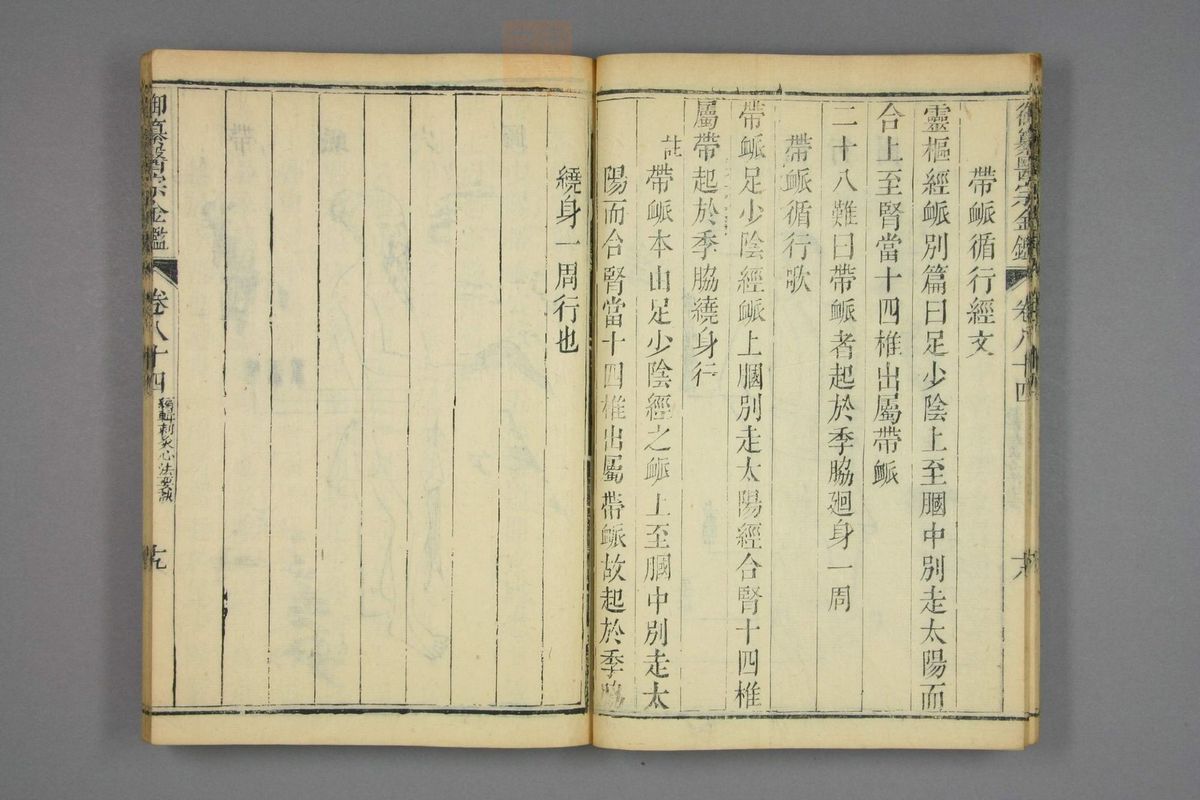 御纂醫宗金鑑 卷八十四
帶䘑循行經文
靈樞經䘑別篇曰足少陰上至膕中別走太陽而
合上至腎當十四椎出屬帶䘑
二十八難曰帶䘑者起於季脇廻身一周
帶䘑循行歌
帶䘑足少陰經䘑上膕別走太陽經合腎十四椎
屬帶起於季脇繞身行
註 帶䘑本由足少陰經之䘑上至膕中別走太
陽而合腎當十四椎出屬帶䘑故起於季脇
繞身一周行也
御纂醫宗金鑑 卷八十四 編輯刺灸心法要訣 十九